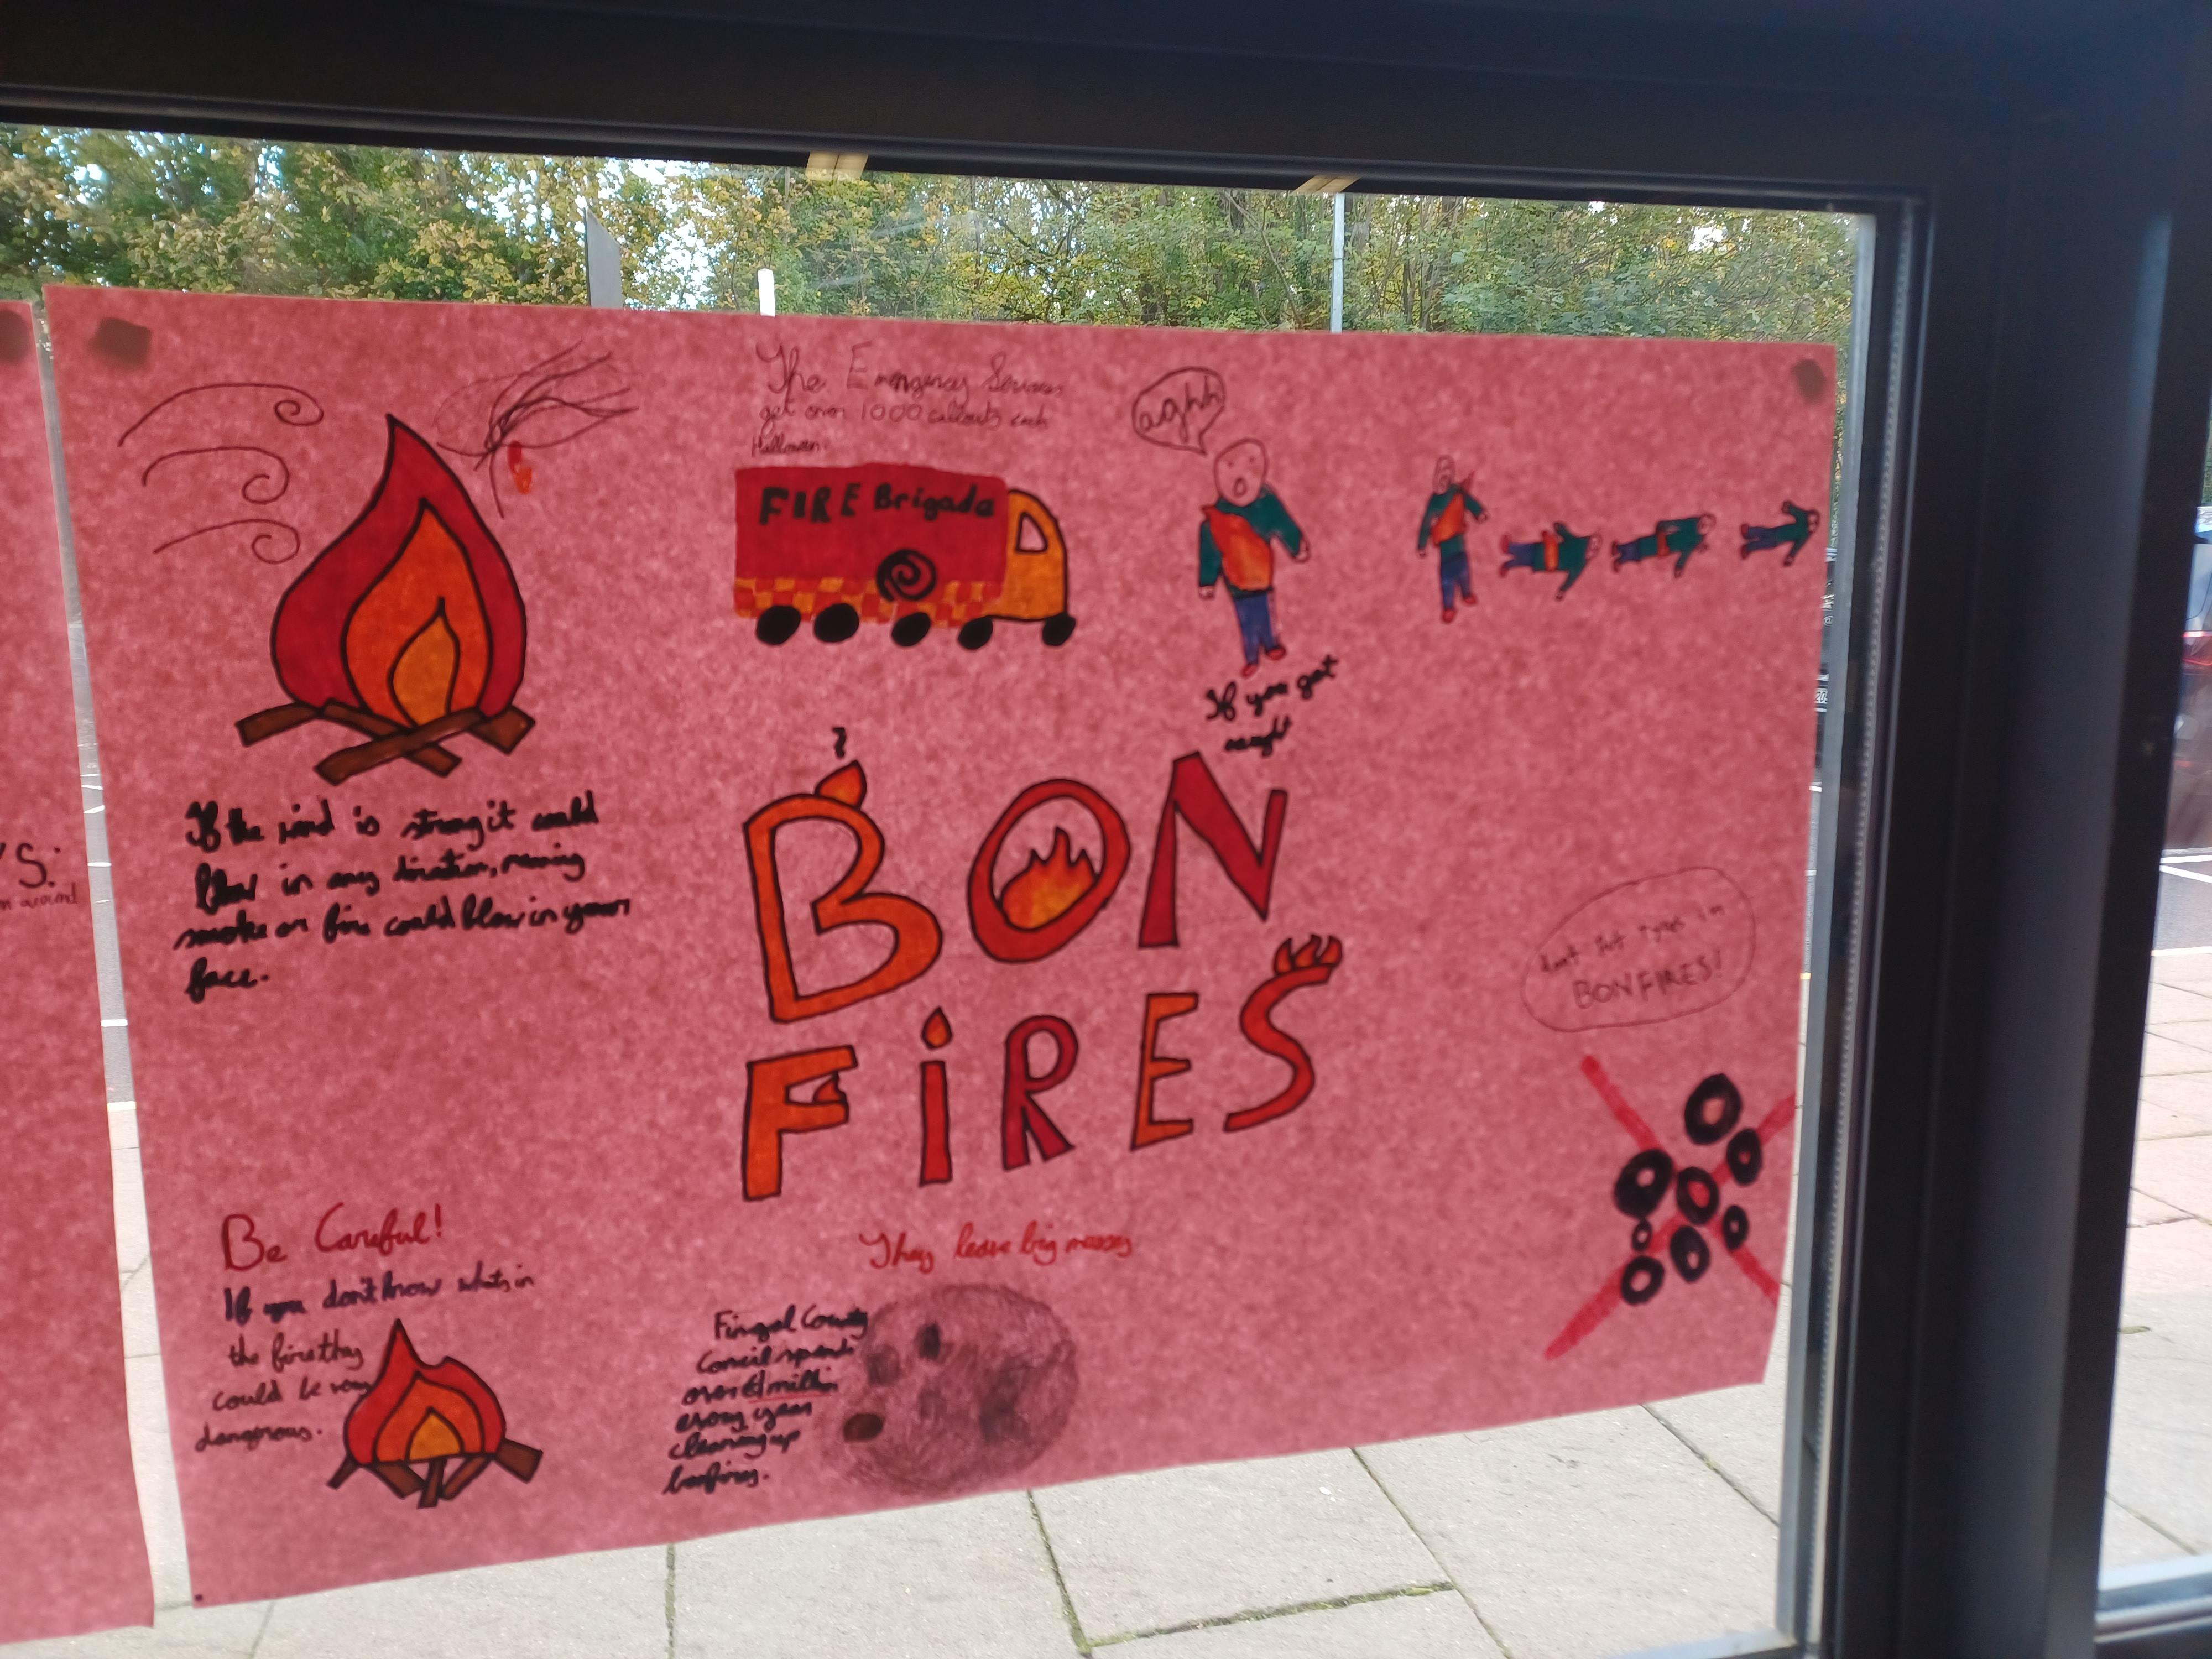 The Emergency Services
get over 1000 callouts each
Halloween.
FIRE Brigade
aghh
If you get
caught
If the wind is strong it could
blow in any direction, meaning
smoke or fire could blow in your
face.
BON
FiRES
dont put tyres in
BONFIRES!
Be Careful!
If you don't know whats in
the fire they
could be very
dangerous.
They leave big messes
Fingal County
Council spends
over €1 million
every year
cleaning up
bonfires.
S:
around